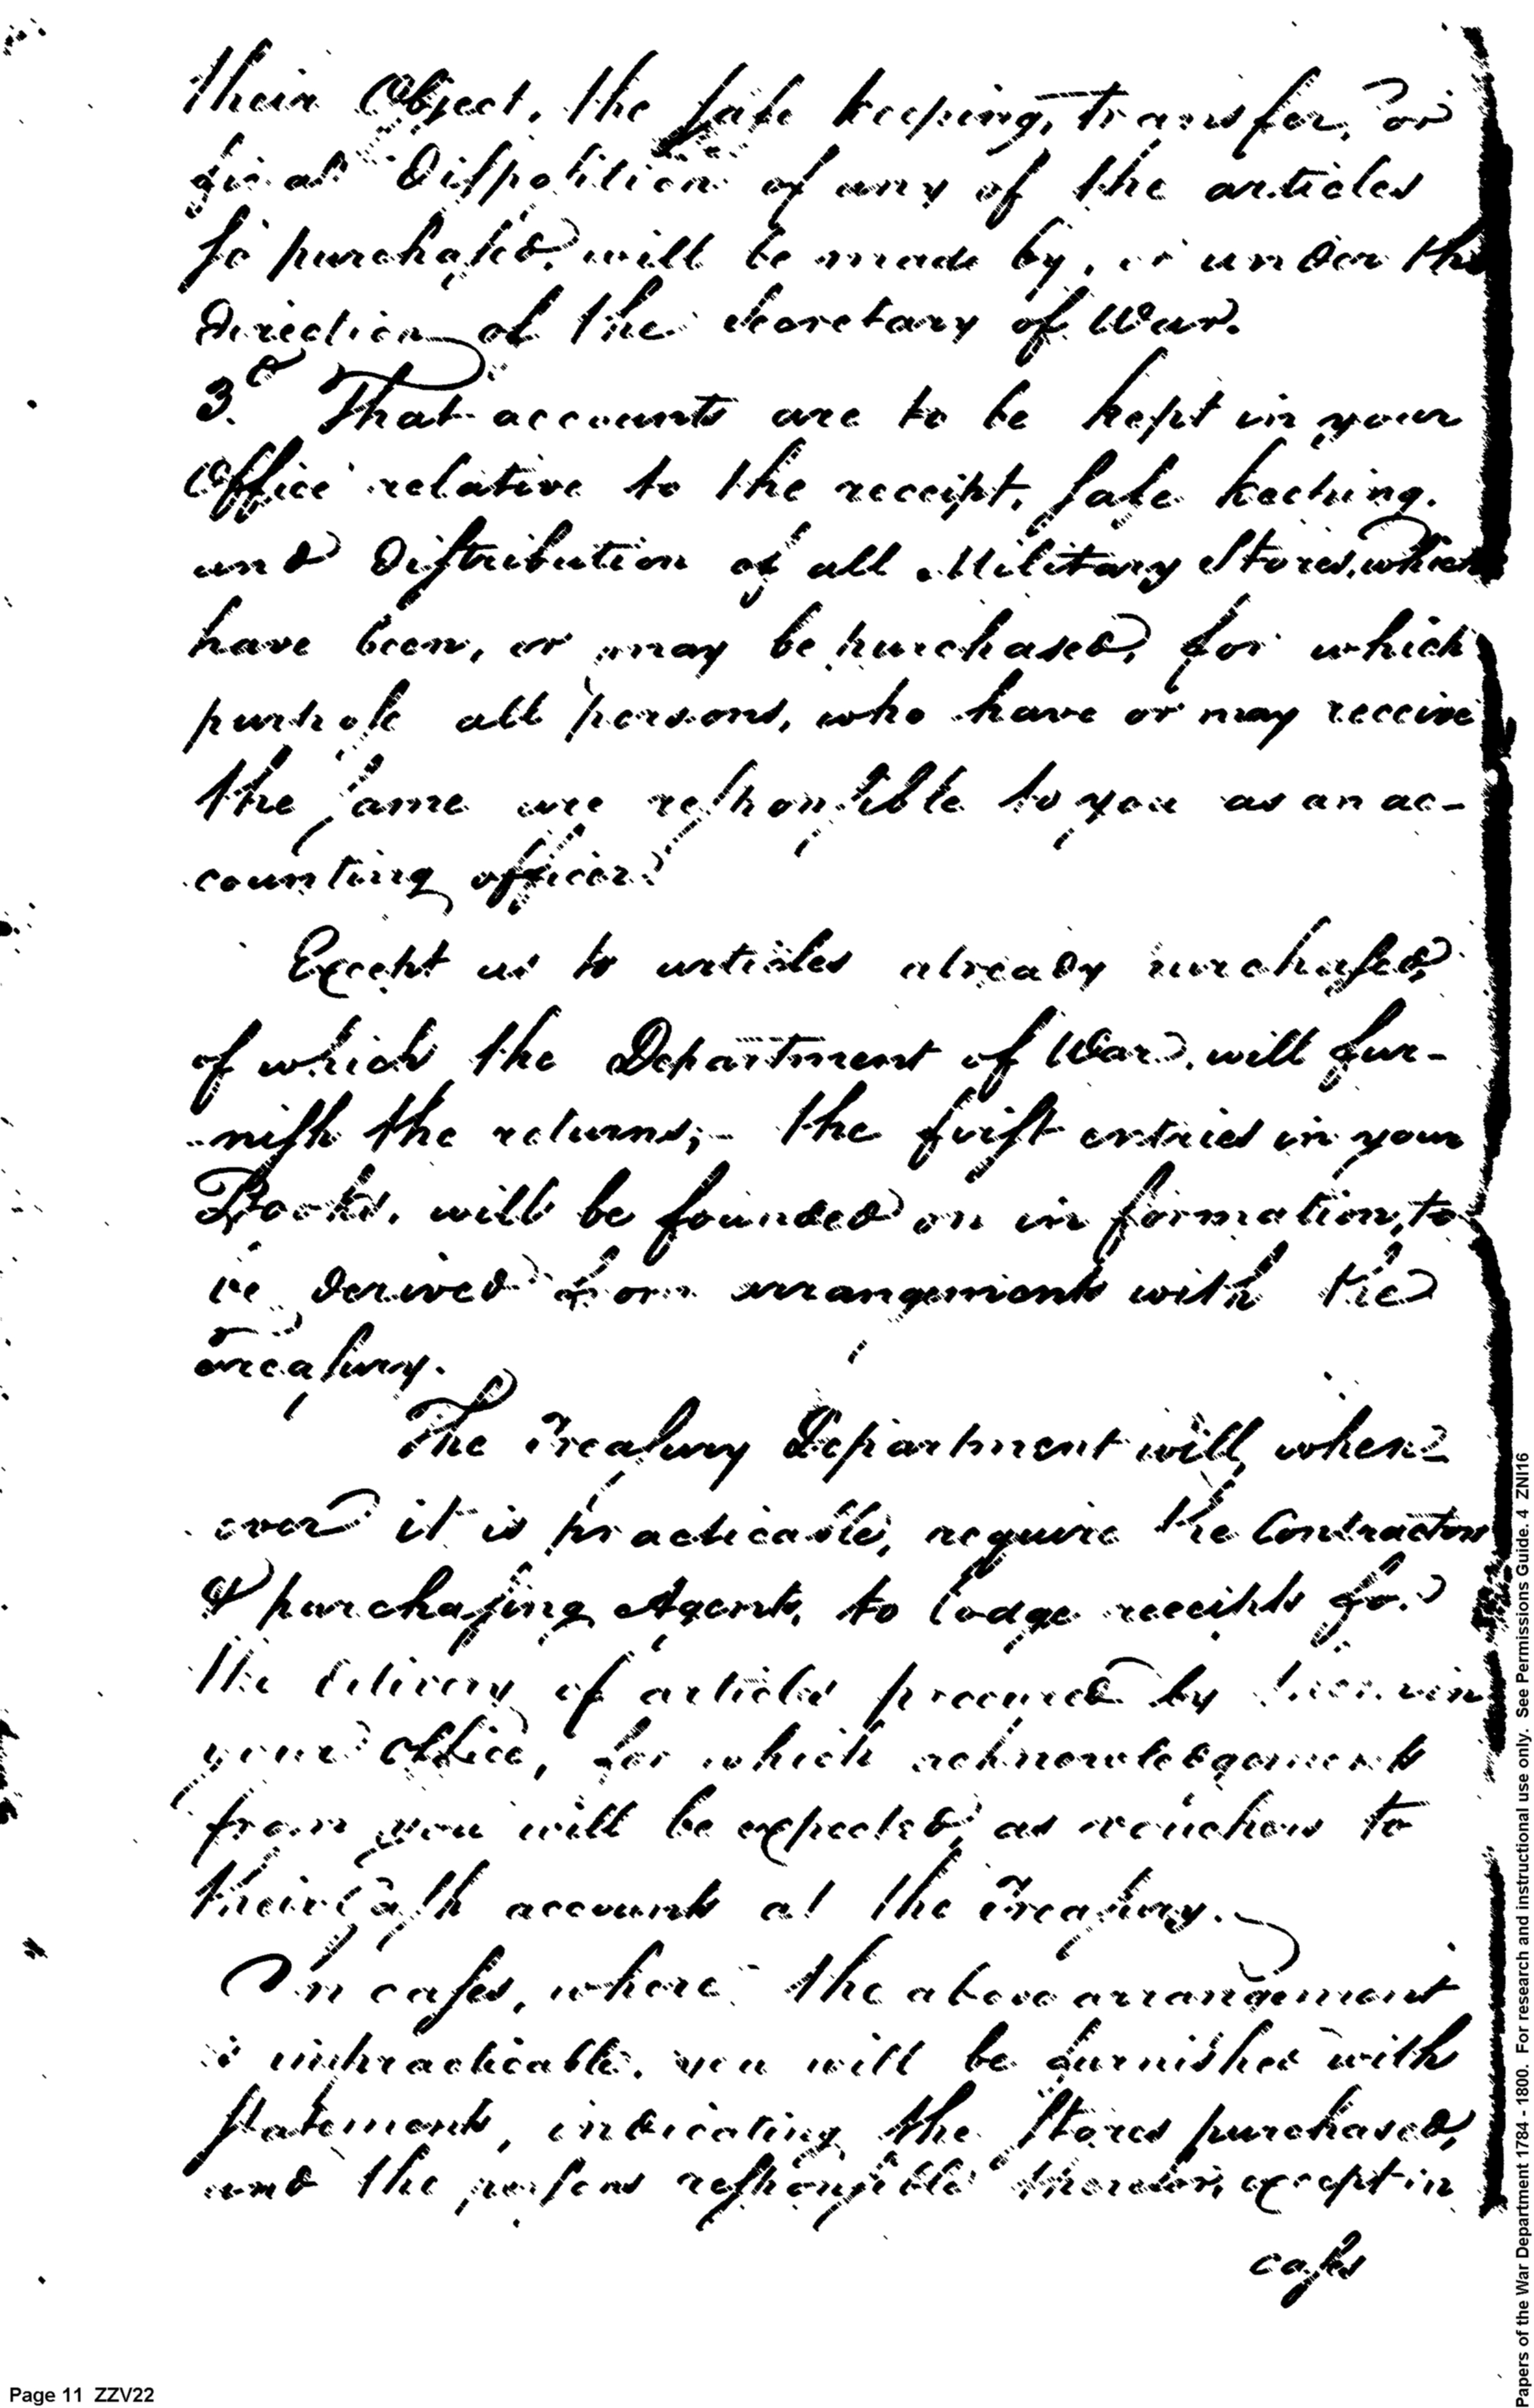 their Object, the safe keeping, transfer, or
final Disposition of any of the articles
so purchased, will be made by, or under the
Direction of the Secretary of War.
3.d That accounts are to be kept in your
Office relative to the receipt, safe keeping,
and Distribution of all Military Stores, which
have been, or may be purchased, for which
purpose all persons, who have or may receive
the same are responsible to you as an ac-
counting officer.
Except as to articles already purchased,
of which the Department of War, will fur-
-nish the returns;- the first entries in your
Books, will be founded on information, to
be derived from arrangements with the
Treasury.
The Treasury Department will, when=
ever it is practicable, require the Contractors
& purchasing Agents, to lodge receipts for
the delivery of articles procured by them in
your office, for which acknowledgements
from you will be expected, as vouchers to
their Cash accounts at the Treasury.
In cases, where the above arrangement
is impracticable, you will be furnished with
statements, indicating the Stores purchased,
and the persons responsible therefor, except in
cases
Page 11 ZZV22
Papers of the War Department 1784 - 1800. For research and instructional use only. See Permissions Guide. 4 ZNI16